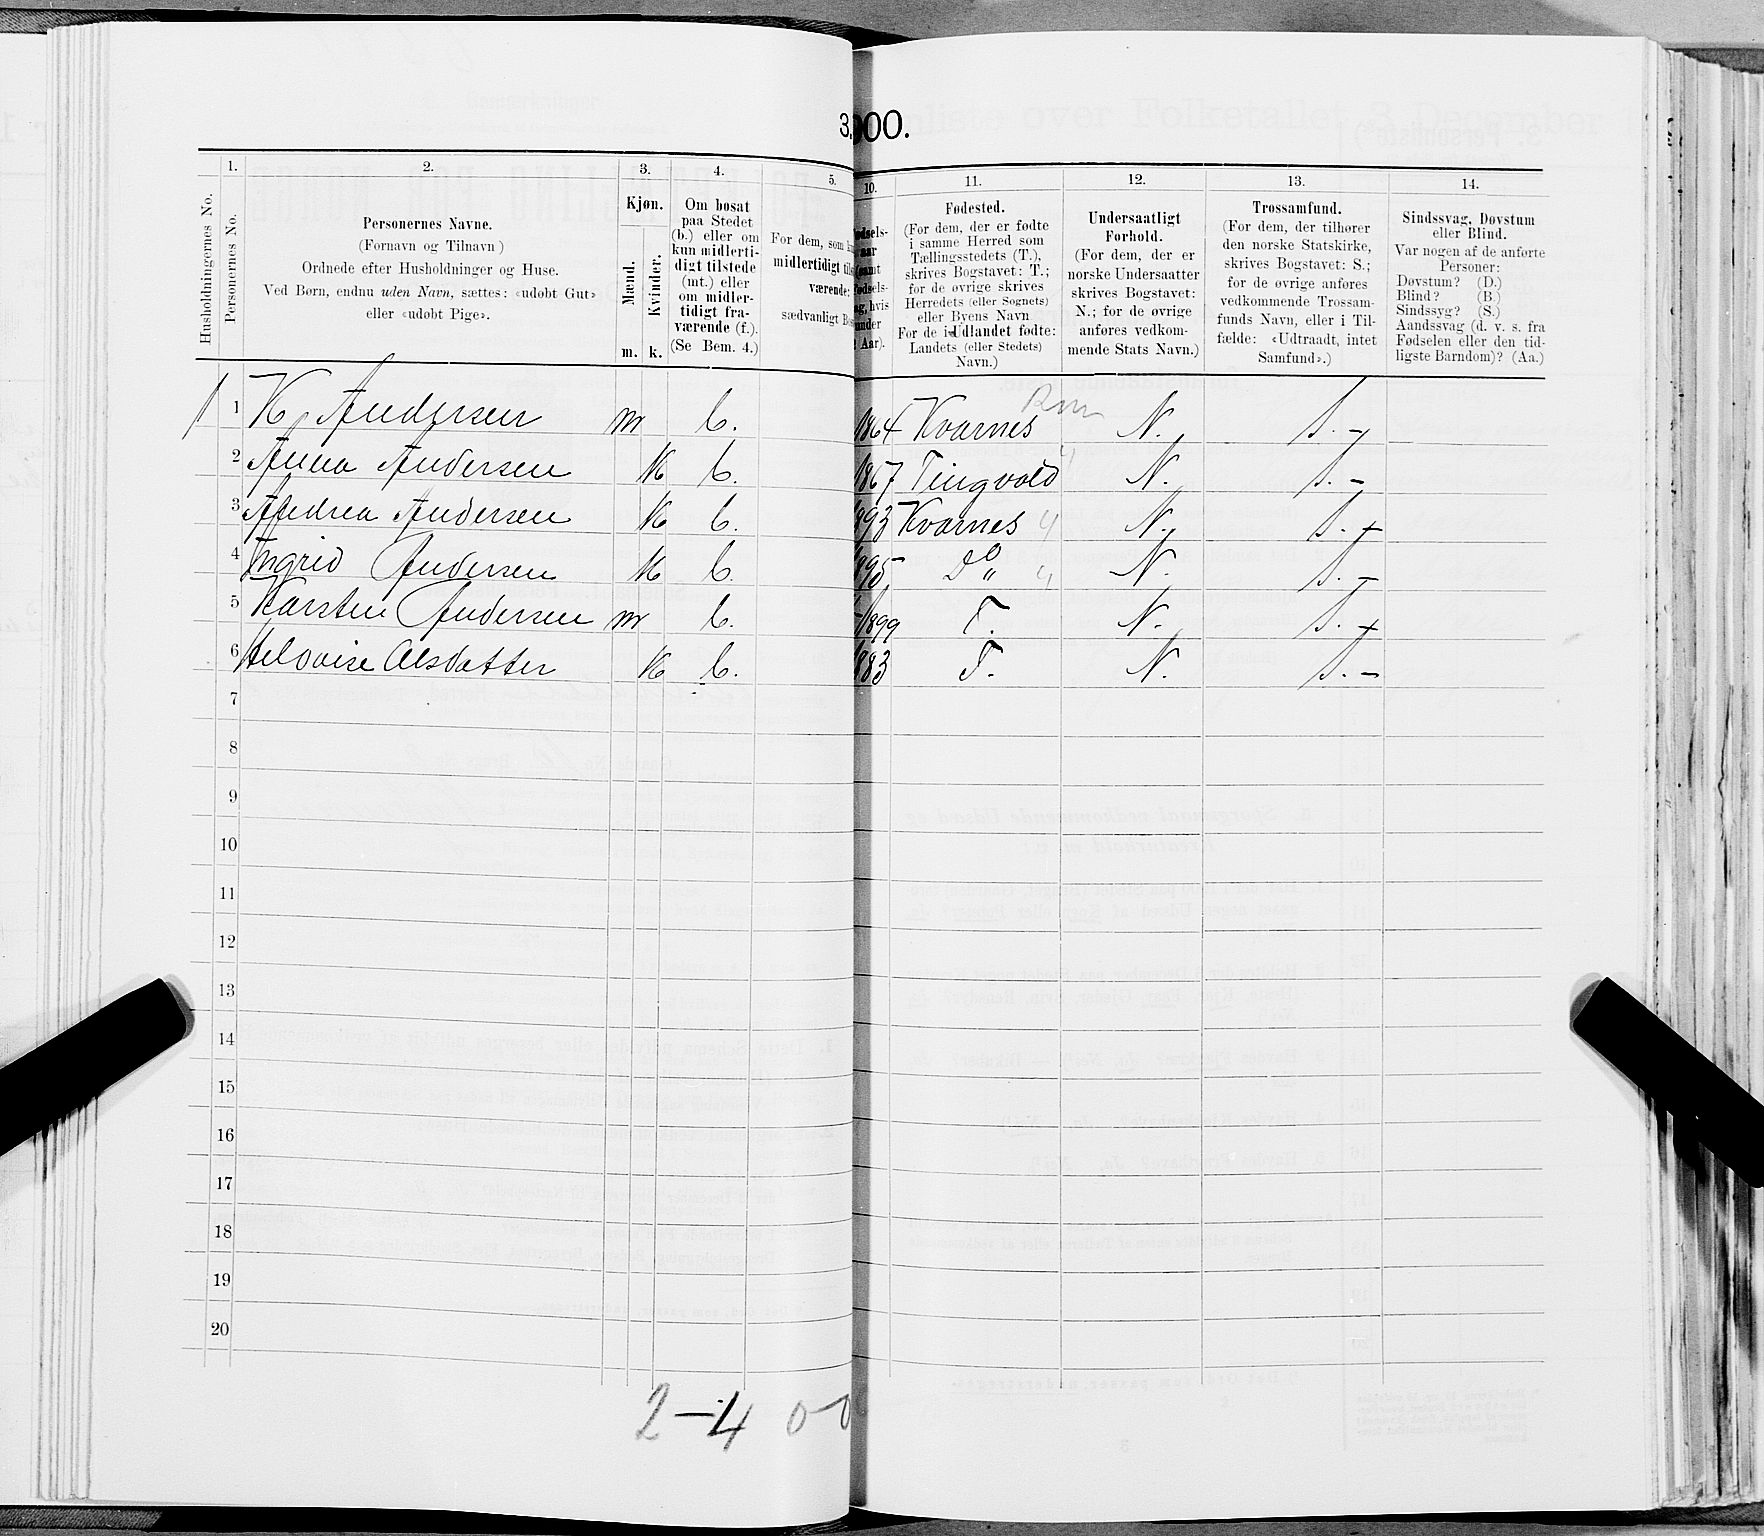 3. 900.
1. 2. 3. 4. 5. 10. 11. 12. 13. 14.
Husholdningernes No.
Personernes No.
Personernes Navne.
(Fornavn og Tilnavn)
Ordnede efter Husholdninger og Huse.
Ved Børn, endnu uden Navn, sættes: «udøbt Gut»
eller «udøbt Pige».
Kjøn.
Mænd.
Kvinder.
m. k.
Om bosat
paa Stedet
(b.) eller om
kun midlerti-
digt tilstede
(mt.) eller
om midler-
tidigt fra-
værende (f.).
(Se Bem. 4.)
For dem, som
midlertidigt
værende:
sædvanligt
Fødested.
(For dem, der er fødte
i samme Herred som
Tællingsstedets (T.),
skrives Bogstavet: T.;
for de øvrige skrives
Herredets (eller Sognets)
eller Byens Navn
For de i Udlandet fødte:
Landets (eller Stedets)
Navn.)
Undersaatligt
Forhold.
(For dem, der er
norske Undersaatter
skrives Bogstavet:
N.; for de øvrige
anføres vedkom-
mende Stats Navn.)
Trossamfund.
(For dem, der tilhører
den norske Statskirke,
skrives Bogstavet: S.;
for de øvrige anføres
vedkommende Trossam-
funds Navn, eller i Til-
fælde: «Udtraadt, intet
Samfund».)
Sindssvag, Døvstum
eller Blind.
Var nogen af de anførte
Personer:
Døvstum? (D.)
Blind? (B.)
Sindssyg? (S.)
Aandssvag (d. v. s. fra
Fødselen eller den tid-
ligste Barndom)? (Aa.)
1 K. Andersen m b. 1864 Kvarnes Rm N. S. -
2 Anna Andersen K b. 1867 Tingvold N. S. -
3 Andrea Andersen K b. 893 Kvarnes N. S. -
4 Ingrid Andersen K b. 895 Do " N. S. -
5 Karsten Andersen m b. 1899 T. N. S. -
6 Helovise Olsdatter K b. 883 T. N. S. -
7
8
9
10
11
12
13
14
15
16
17
18
19
20
2-4 0-0